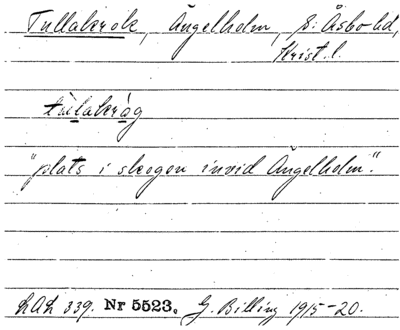 Tullakrok, Ängelholm, S. Åsbo hd,
Krist. l.
tùlakråg
"plats i skogen invid Ängelholm".
LAL 339. Nr 5523. G. Billing 1915-20.